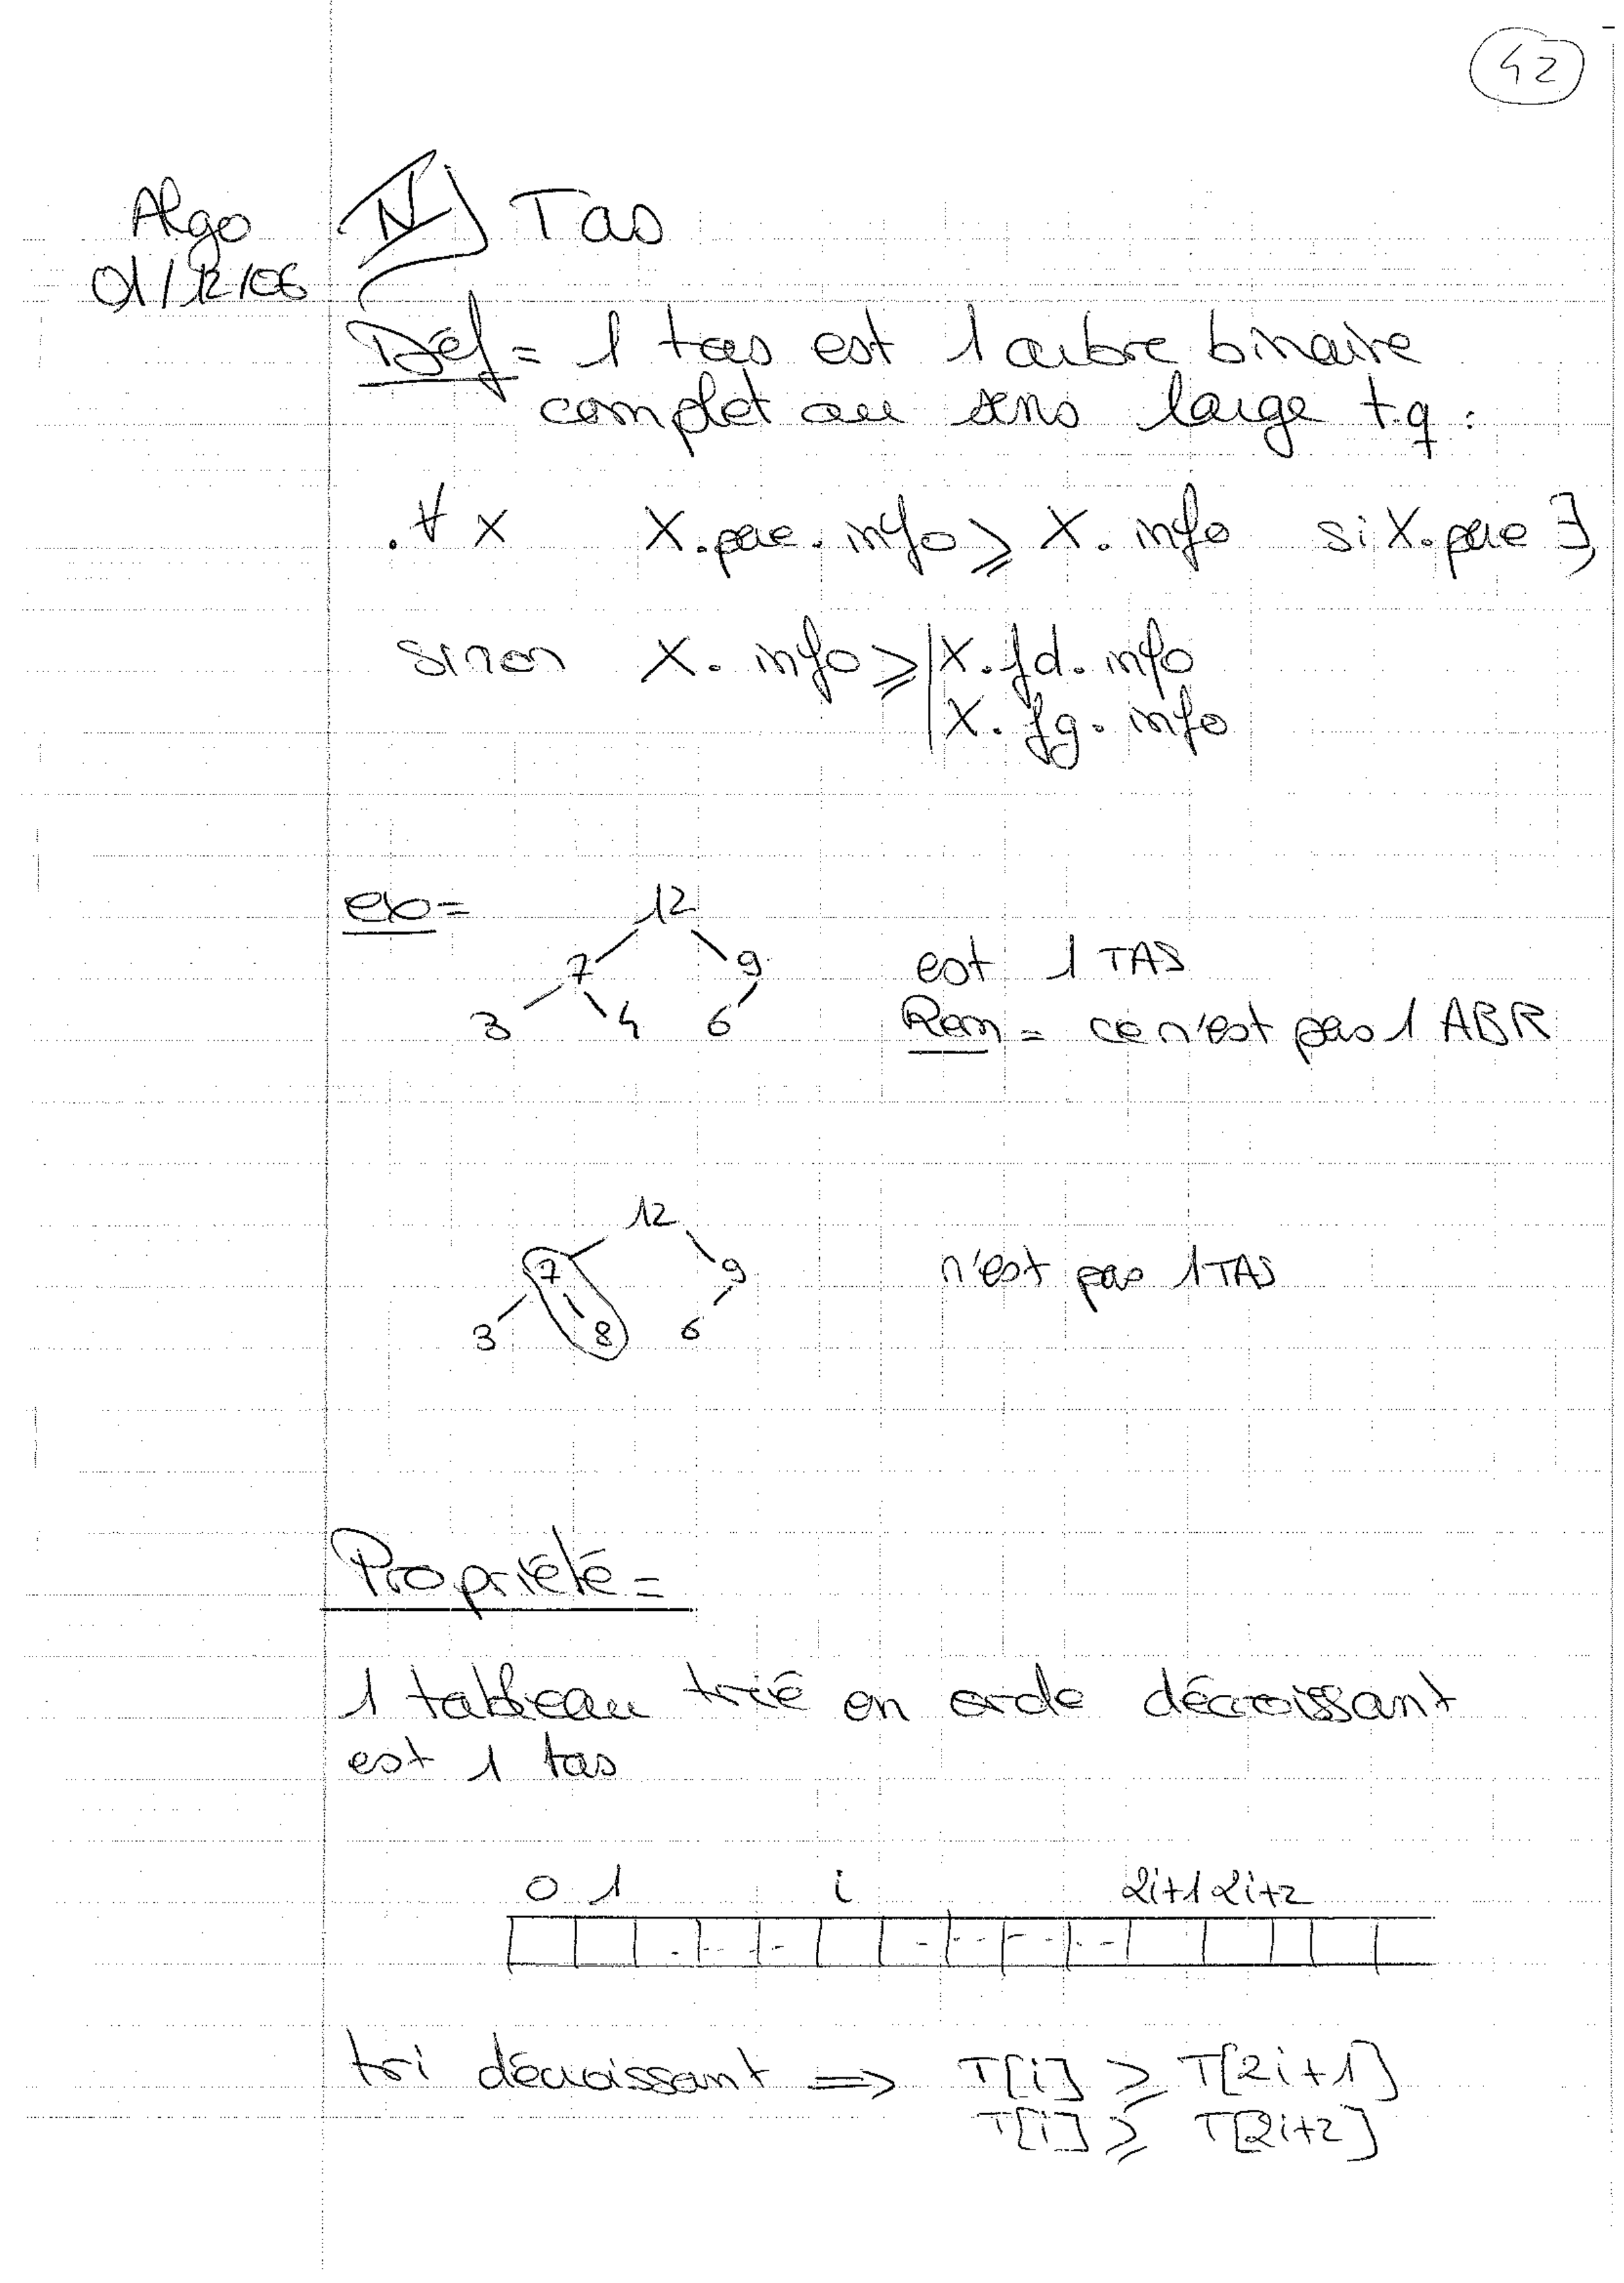 42
Algo
01/12/06
IV) Tas
Def = 1 tas est 1 arbre binaire
complet au sens large t.q :
. ∀ x X.pere.info ⩾ X.info si X.pere ∃,
sinon X.info ⩾ | X.fd.info
| X.fg.info
ex =
12
7 9
3 4 6
est 1 TAS
Rem = ce n'est pas 1 ABR
12
7 9
3 8 6
n'est pas 1 TAS
Propriété =
1 tableau trié en ordre décroissant
est 1 tas
0 1 i 2i+1 2i+2
tri décroissant ⟹ T[i] ⩾ T[2i+1]
T[i] ⩾ T[2i+2]